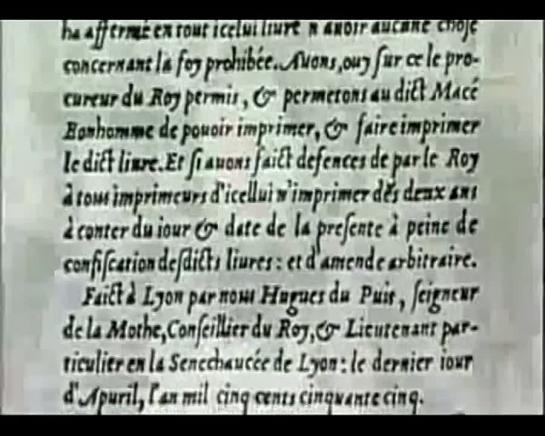 ha afferme en tout icelui liure n'auoir aucune chose
concernant la foy prohibée. Auons, ouy sur ce le pro-
cureur du Roy permis, & permetons au dict Macé
Bonhomme de pouoir imprimer, & faire imprimer
le dict liure. Et si auons faict defences de par le Roy
à tous imprimeurs d'icellui n'imprimer dés deux ans
à conter du iour & date de la presente à peine de
confiscation desdicts liures: et d'amende arbitraire.
Faict à Lyon par nous Hugues du Puis, seigneur
de la Mothe, Conseillier du Roy, & Lieutenant par-
ticulier en la Senechaucée de Lyon: le dernier iour
d'Apuril, l'an mil cinq cents cinquante cinq.